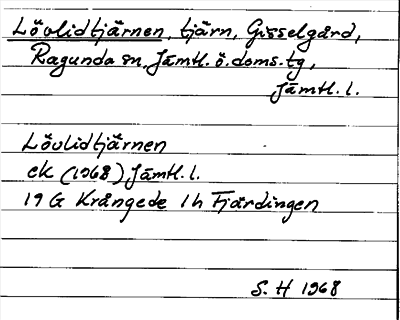 Lövlidtjärnen, tjärn, Gisselgård,
Ragunda sn, Jämtl. ö. doms. tg,
Jämtl. l.
Lövlidtjärnen
ek (1968) Jämtl. l.
19 G Krångede 1h Fjärdingen
S. H 1968